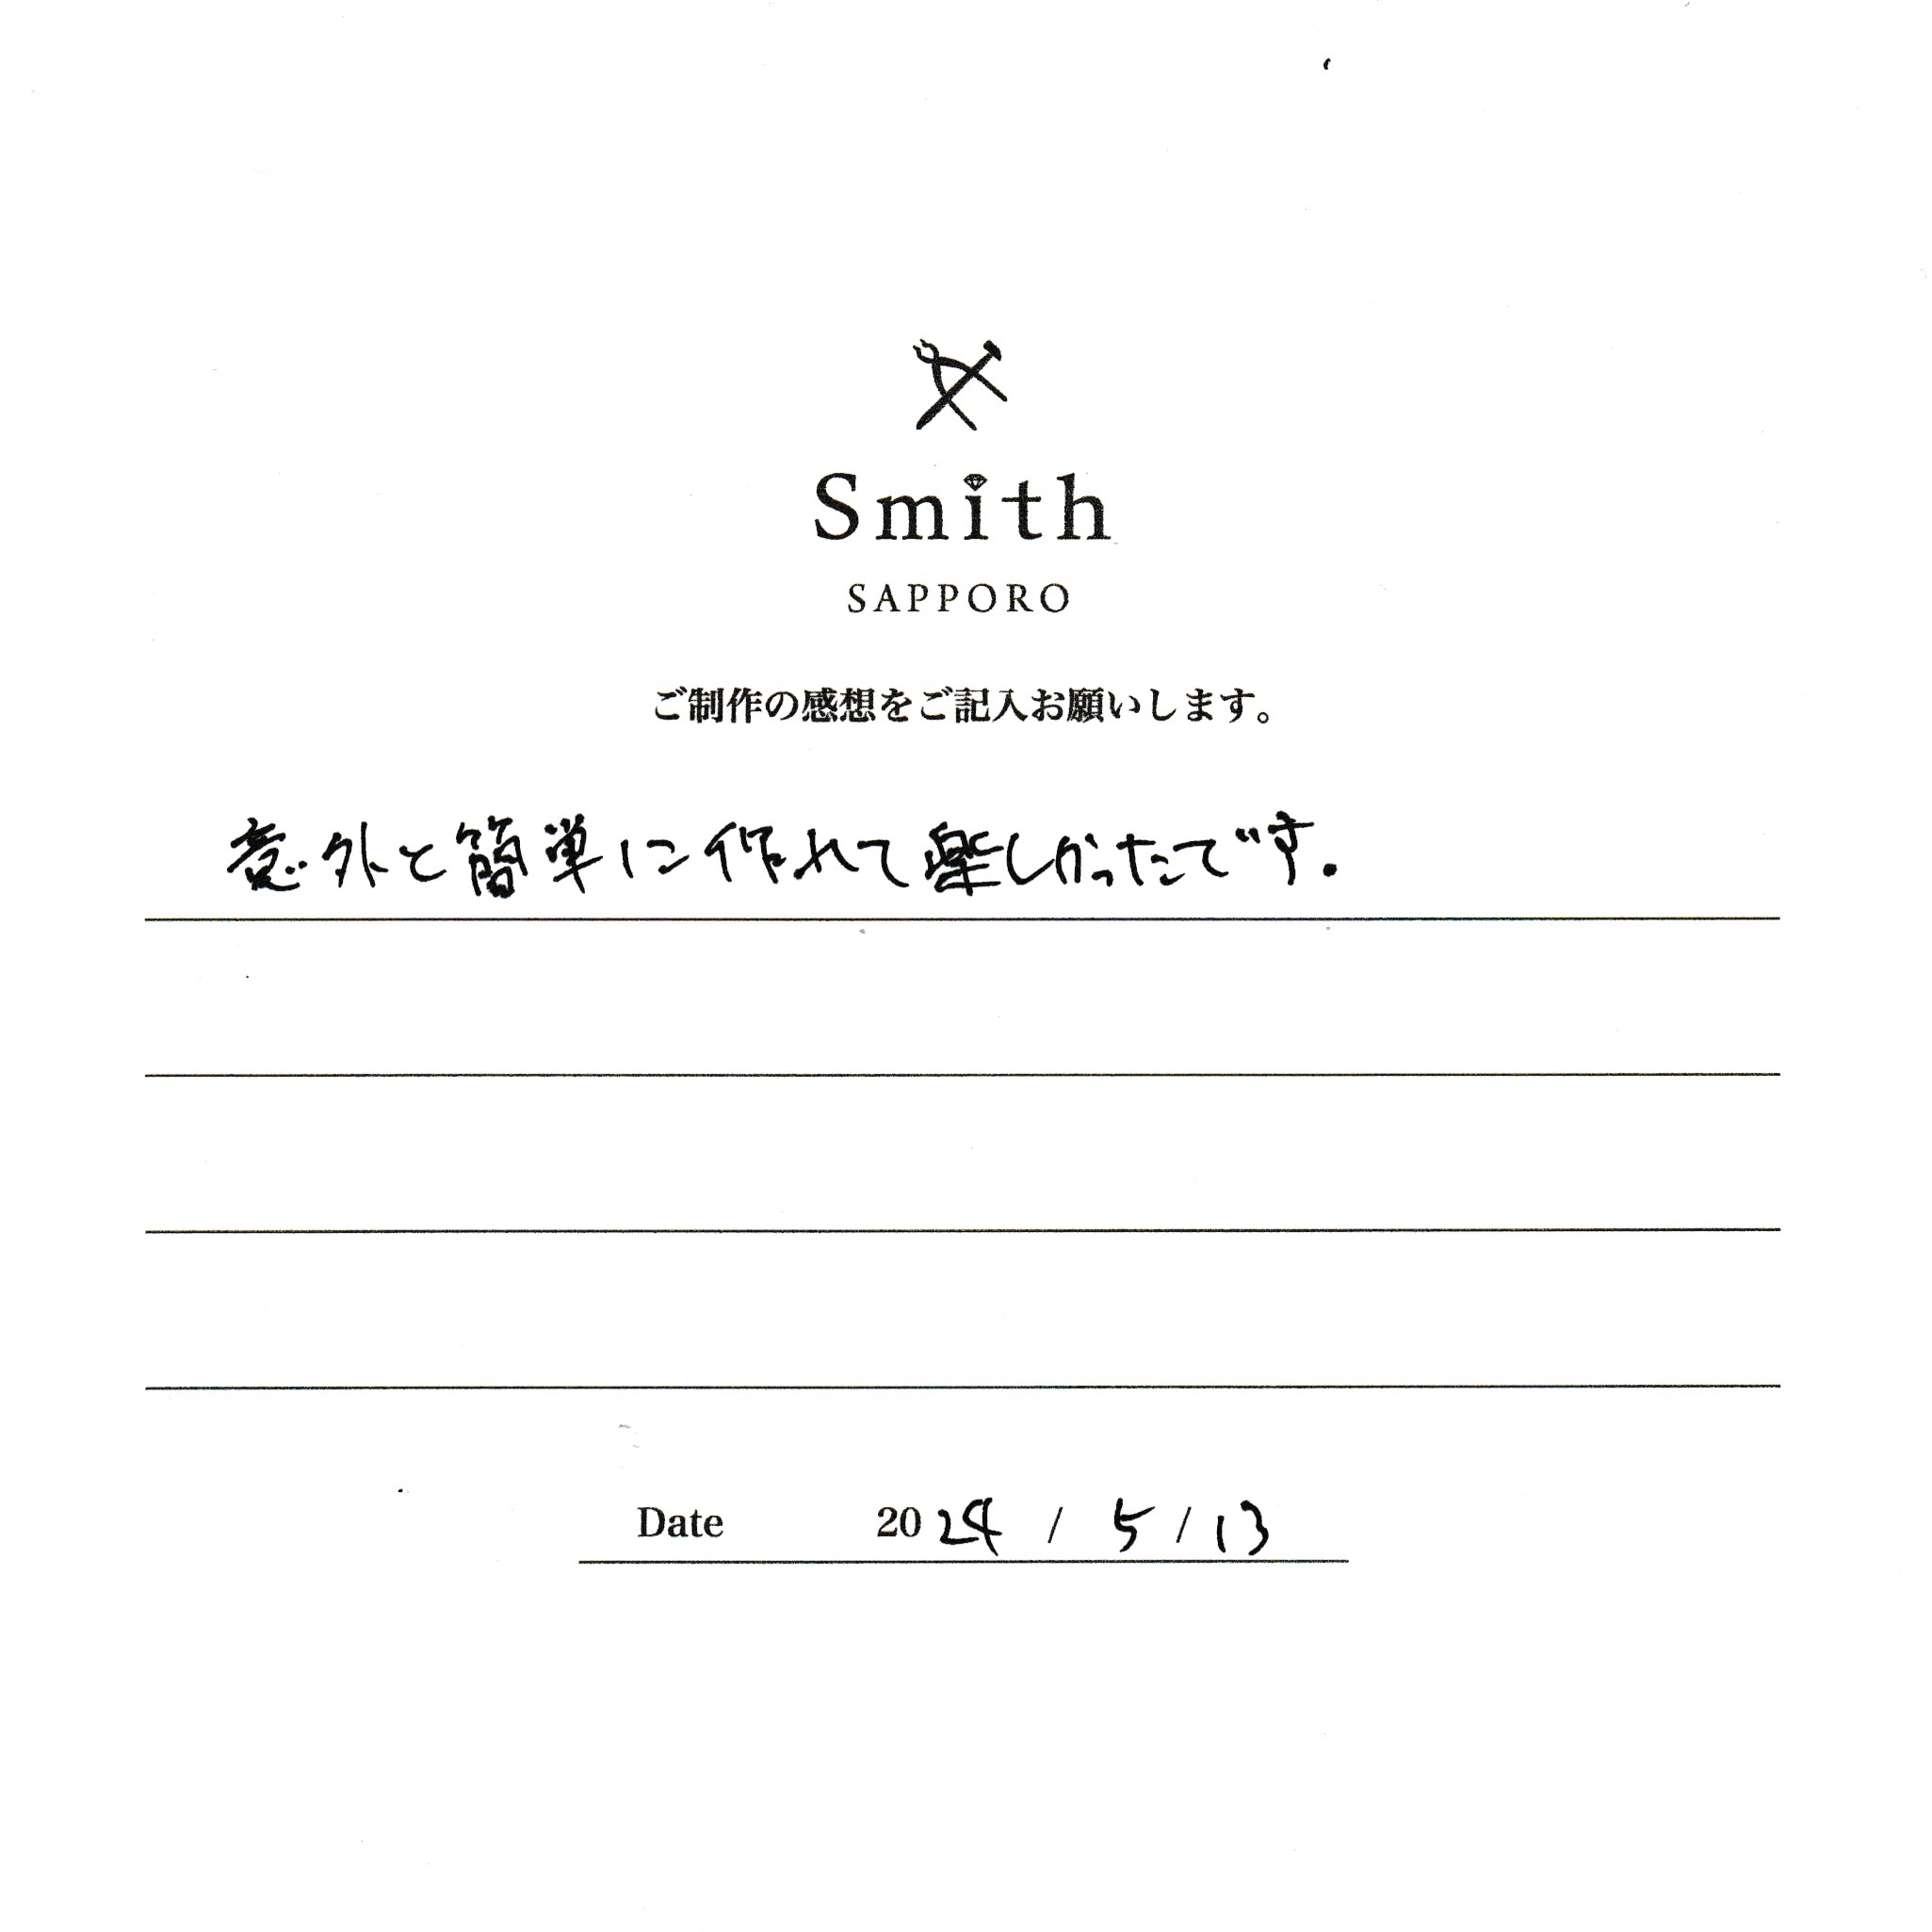 Smith
SAPPORO
ご制作の感想をご記入お願いします。
意外と簡単に作れて楽しかったです。
Date 2024 / 5 / 13